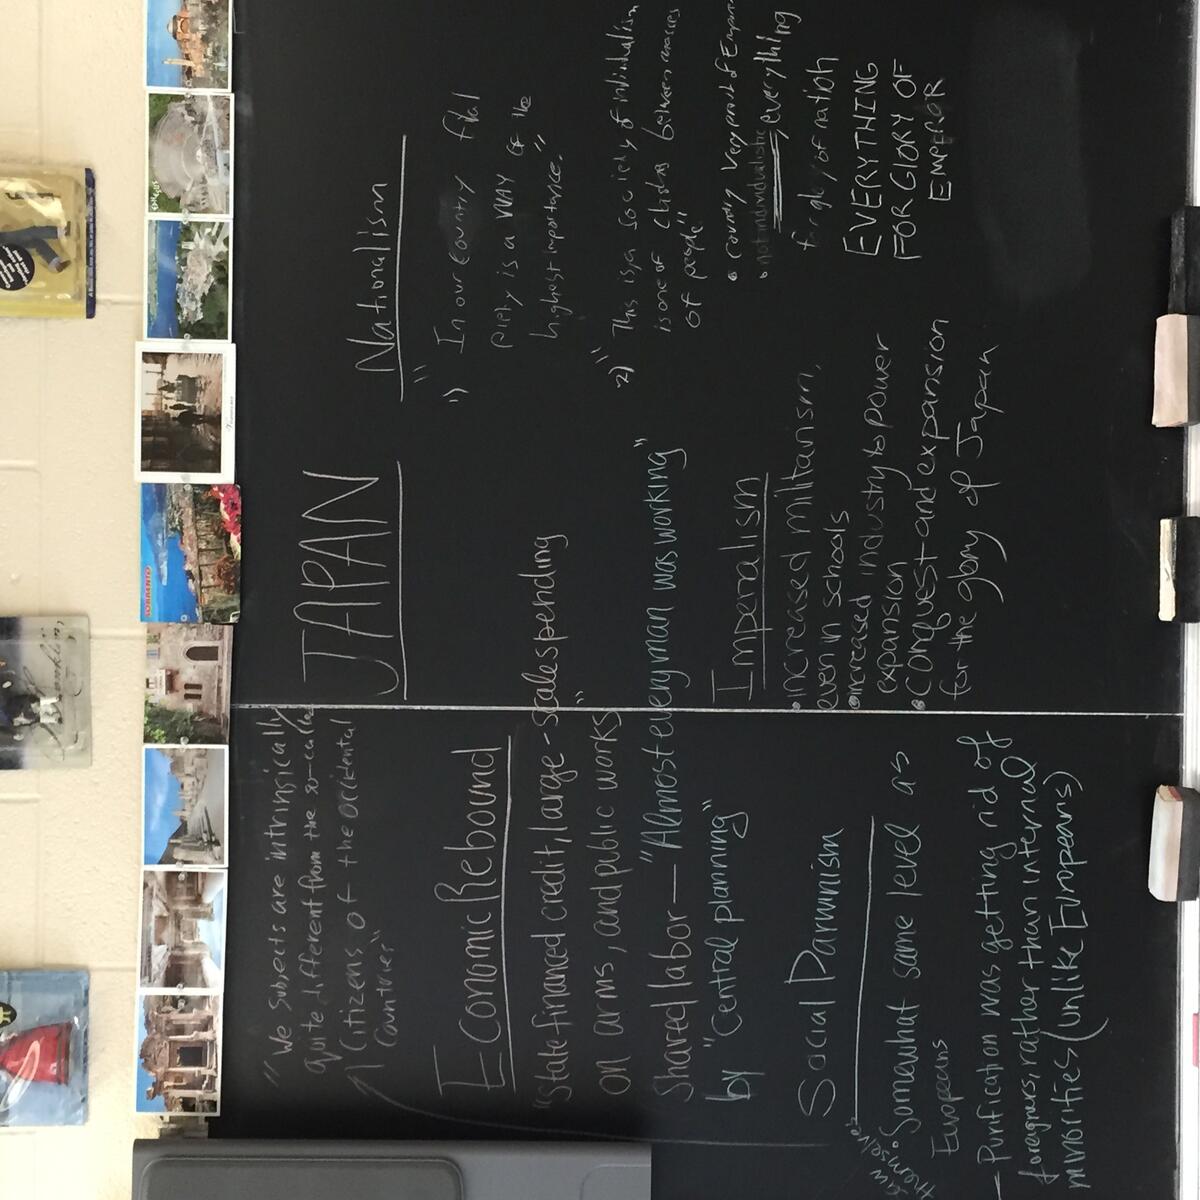 JAPAN
"We subjects are intrinsically
quite different from the so-called
citizens of the occidental
countries"
Economic Rebound
"State financed credit, large-scale spending
on arms, and public works"
Shared labor — "Almost every man was working"
by "central planning"
Social Darwinism
saw
themselves
• Somewhat same level as
Europeans
- Purification was getting rid of
foreigners, rather than internal
minorities (unlike Europeans)
Nationalism
1) "In our country filial
piety is a way of the
highest importance."
2) "This is a society of
is one of between masses
of people"
• country very proud of
• not individualistic, everything
for glory of nation
EVERYTHING
FOR GLORY OF
EMPEROR
Imperalism
• increased militarism,
even in schools
• increased industry to power
expansion
• Conquest and expansion
for the glory of Japan
SORRENTO
Franklin